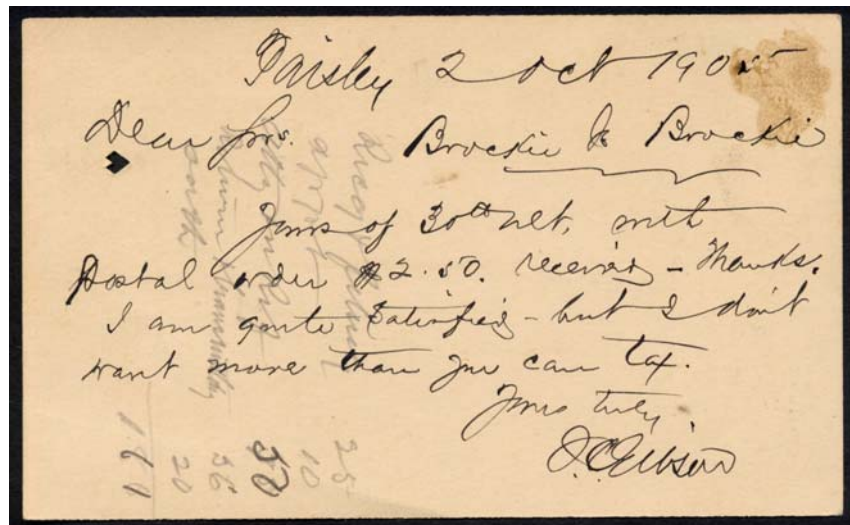 Paisley 2 Oct 1905
Dear Sirs. Brockie & Brockie
Yours of 30th ult, with
Postal order $2.50. received - Thanks.
I am quite satisfied - but I don't
want more than you can tax.
Yours truly,
J.C. Gibson
25
10
50
56
20
161